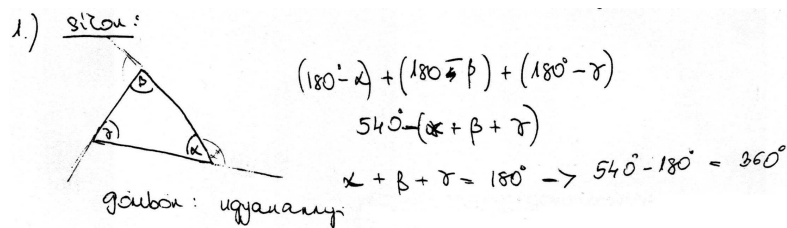 1.) síkon:
β
γ
α
(180° - α) + (180° - β) + (180° - γ)
540° - (α + β + γ)
α + β + γ = 180° -> 540° - 180° = 360°
gömbön: ugyanannyi